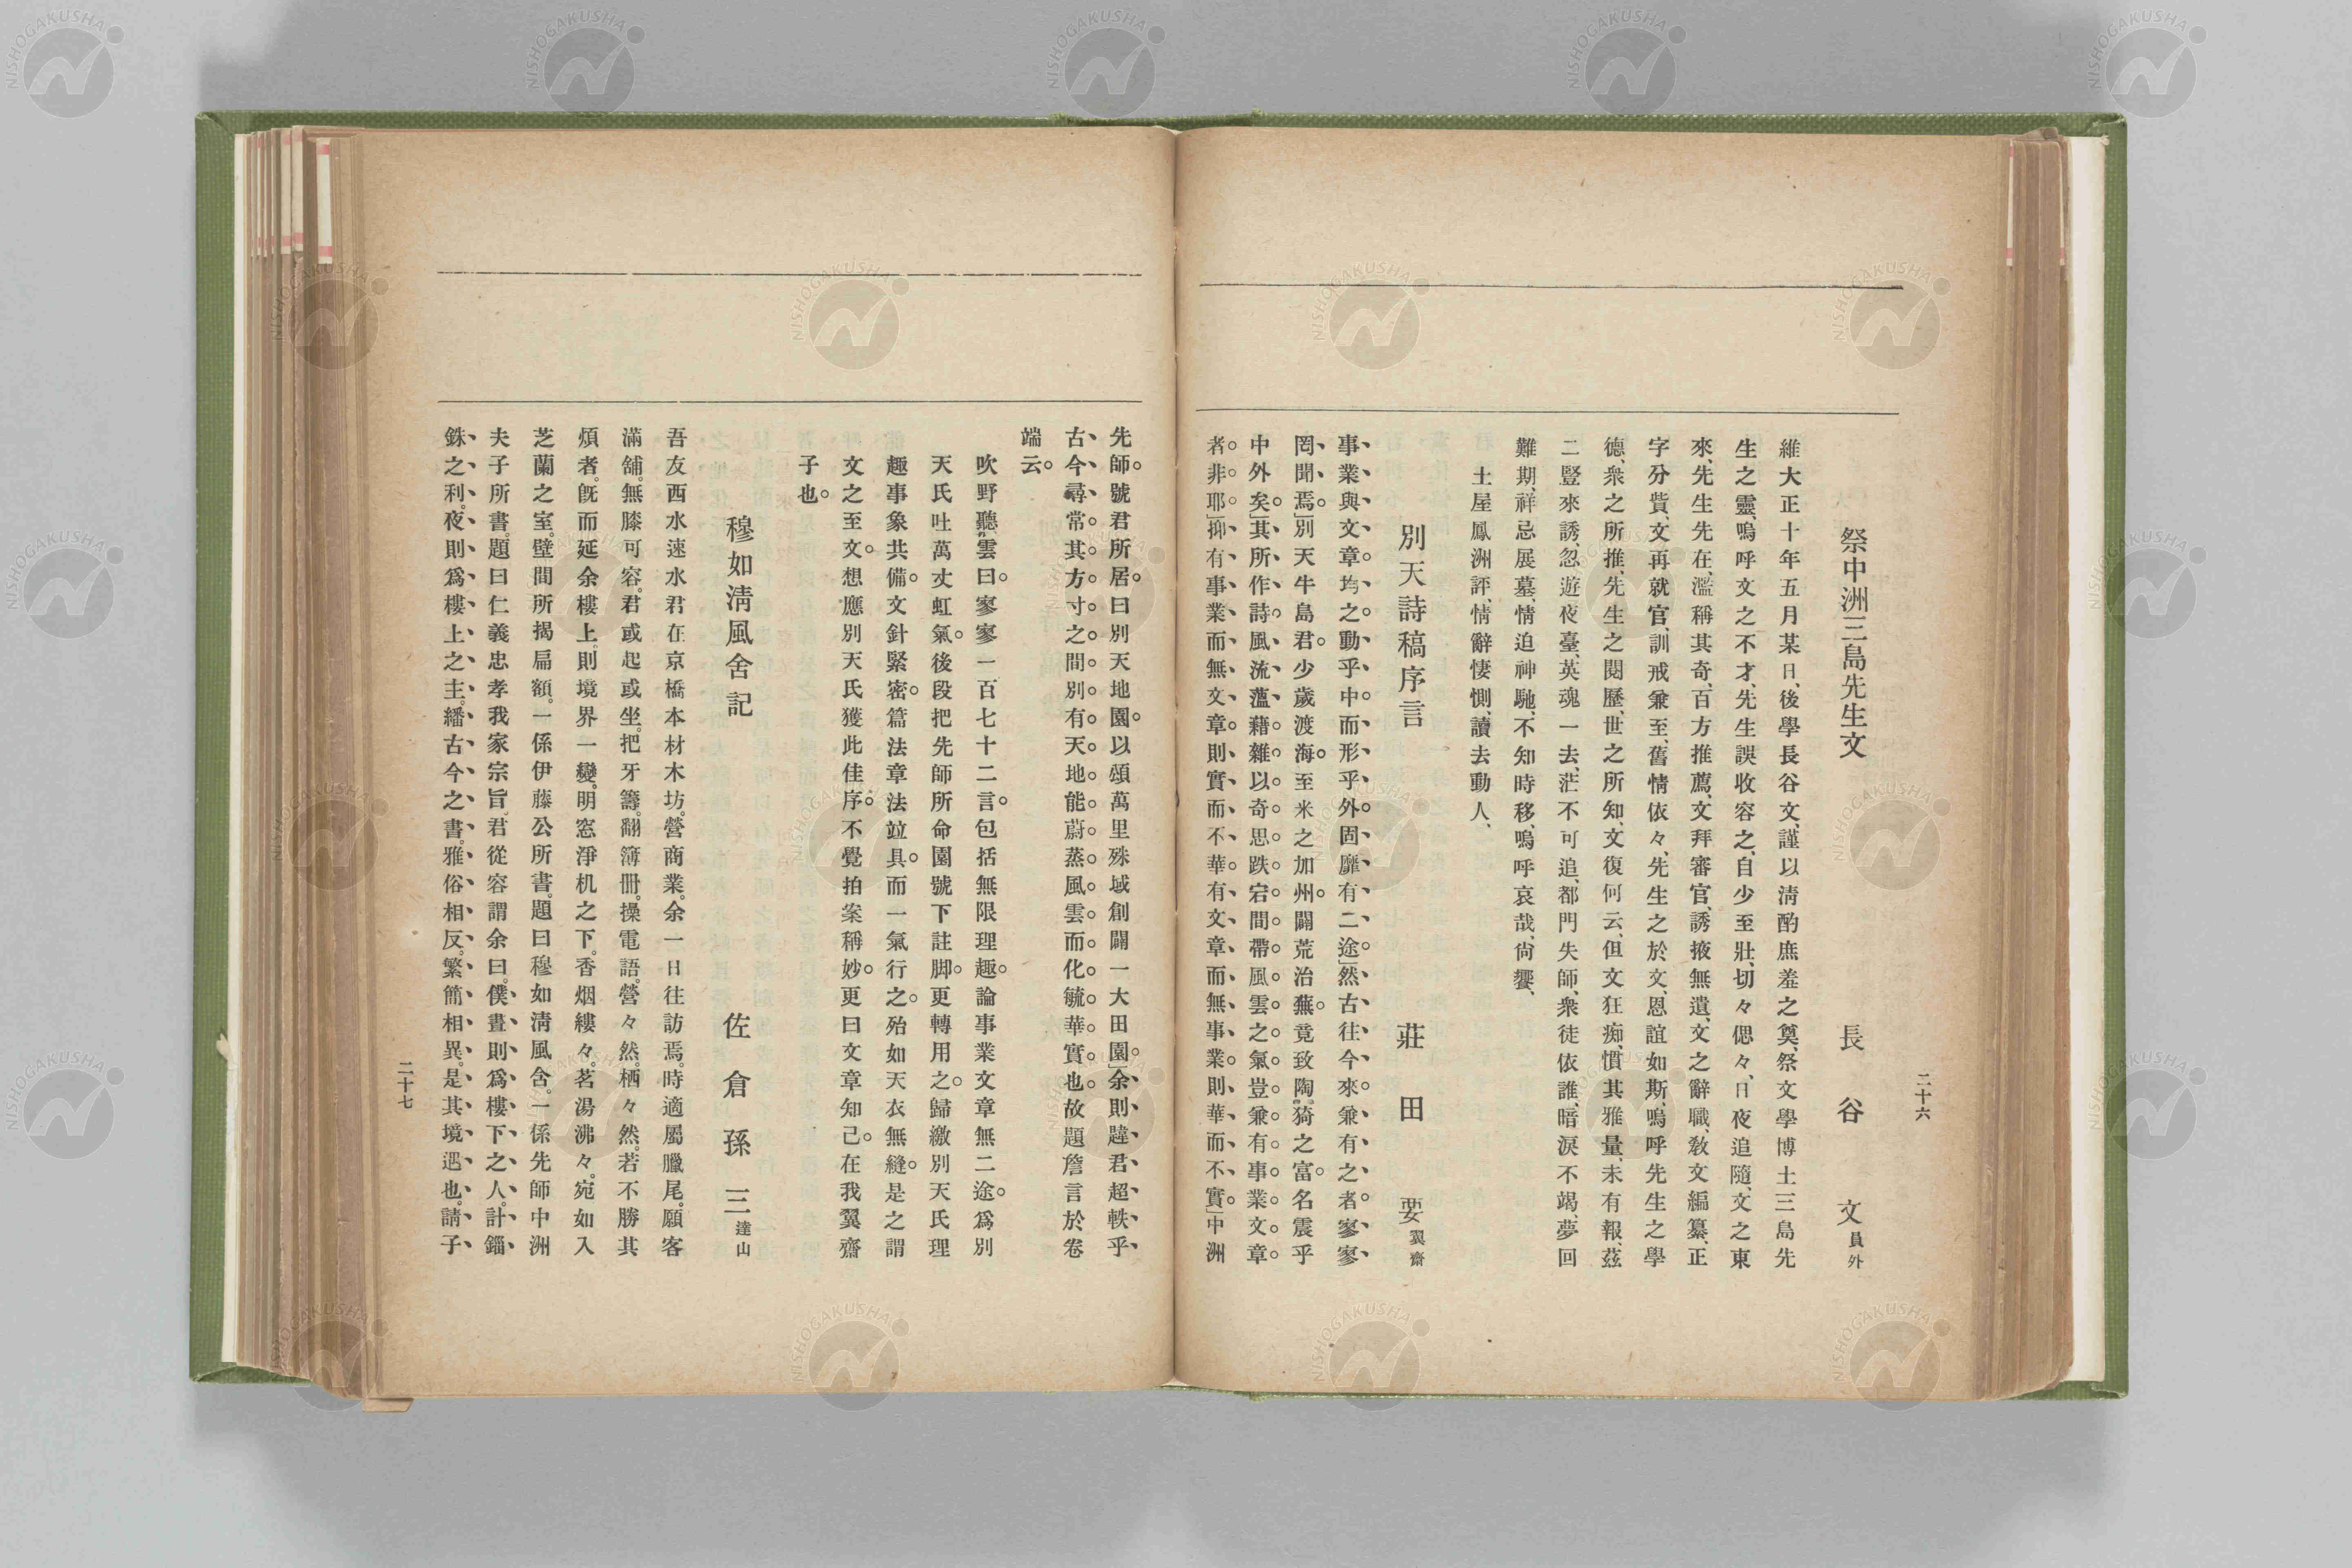 二十六
祭中洲三島先生文 長谷文員外
維大正十年五月某日、後學長谷文、謹以淸酌庶羞之奠、祭文學博士三島先
生之靈、嗚呼文之不才、先生誤收容之、自少至壯、切々偲々、日夜追隨、文之東
來、先生先在、濫稱其奇、百方推薦、文拜審官、誘掖無遺、文之辭職、敎文編纂、正
字分貲、文再就官、訓戒兼至、舊情依々、先生之於文、恩誼如斯、嗚呼先生之學
德、衆之所推、先生之閱歷、世之所知、文復何云、但文狂痴、慣其雅量、未有報、茲
二豎來誘、忽遊夜臺、英魂一去、茫不可追、都門失師、衆徒依誰、暗淚不竭、夢回
難期、祥忌展墓、情追神馳、不知時移、嗚呼哀哉、尙饗、
土屋鳳洲評、情辭悽惻、讀去動人、
別天詩稿序言 莊田要翼齋
事業與文章。均之。動乎中。而形乎外。固靡有二途。」然古往今來。兼有之者。寥寥
罔聞焉。」別天牛島君。少歲渡海。至米之加州。闢荒治蕪。竟致陶猗之富。名震乎
中外矣。」其所作詩。風流薀藉。雜以奇思跌宕。間帶風雲之氣。豈兼有事業文章
者。非耶。」抑有事業而無文章。則實而不華。有文章而無事業。則華而不實。」中洲
先師。號君所居。曰別天地園。以頌萬里殊域創闢一大田園。」余則韙君超軼乎
古今。尋常其方寸之間。別有天地。能蔚蒸風雲。而化毓華實也。故題詹言於卷
端云。
吹野聽雲曰。寥寥一百七十二言。包括無限理趣。論事業文章無二途。爲別
天氏吐萬丈虹氣。後段把先師所命園號下註脚。更轉用之。歸繳別天氏理
趣事象共備。文針緊密。篇法章法竝具。而一氣行之。殆如天衣無縫。是之謂
文之至文。想應別天氏獲此佳序。不覺拍案稱妙。更曰文章知己。在我翼齋
子也。
穆如淸風舍記 佐倉孫三達山
吾友西水速水君在京橋本材木坊。營商業。余一日往訪焉。時適屬臘尾。願客
滿舖。無膝可容。君或起或坐。把牙籌。翻簿冊。操電語。營々然。栖々然。若不勝其
煩者。旣而延余樓上。則境界一變。明窓淨机之下。香烟縷々。茗湯沸々。宛如入
芝蘭之室。壁間所揭扁額。一係伊藤公所書。題曰穆如淸風舍。一係先師中洲
夫子所書。題曰仁義忠孝我家宗旨。君從容謂余曰。僕晝則爲樓下之人。計錙
銖之利。夜則爲樓上之主。繙古今之書。雅俗相反。繁簡相異。是其境遇也。請子
二十七